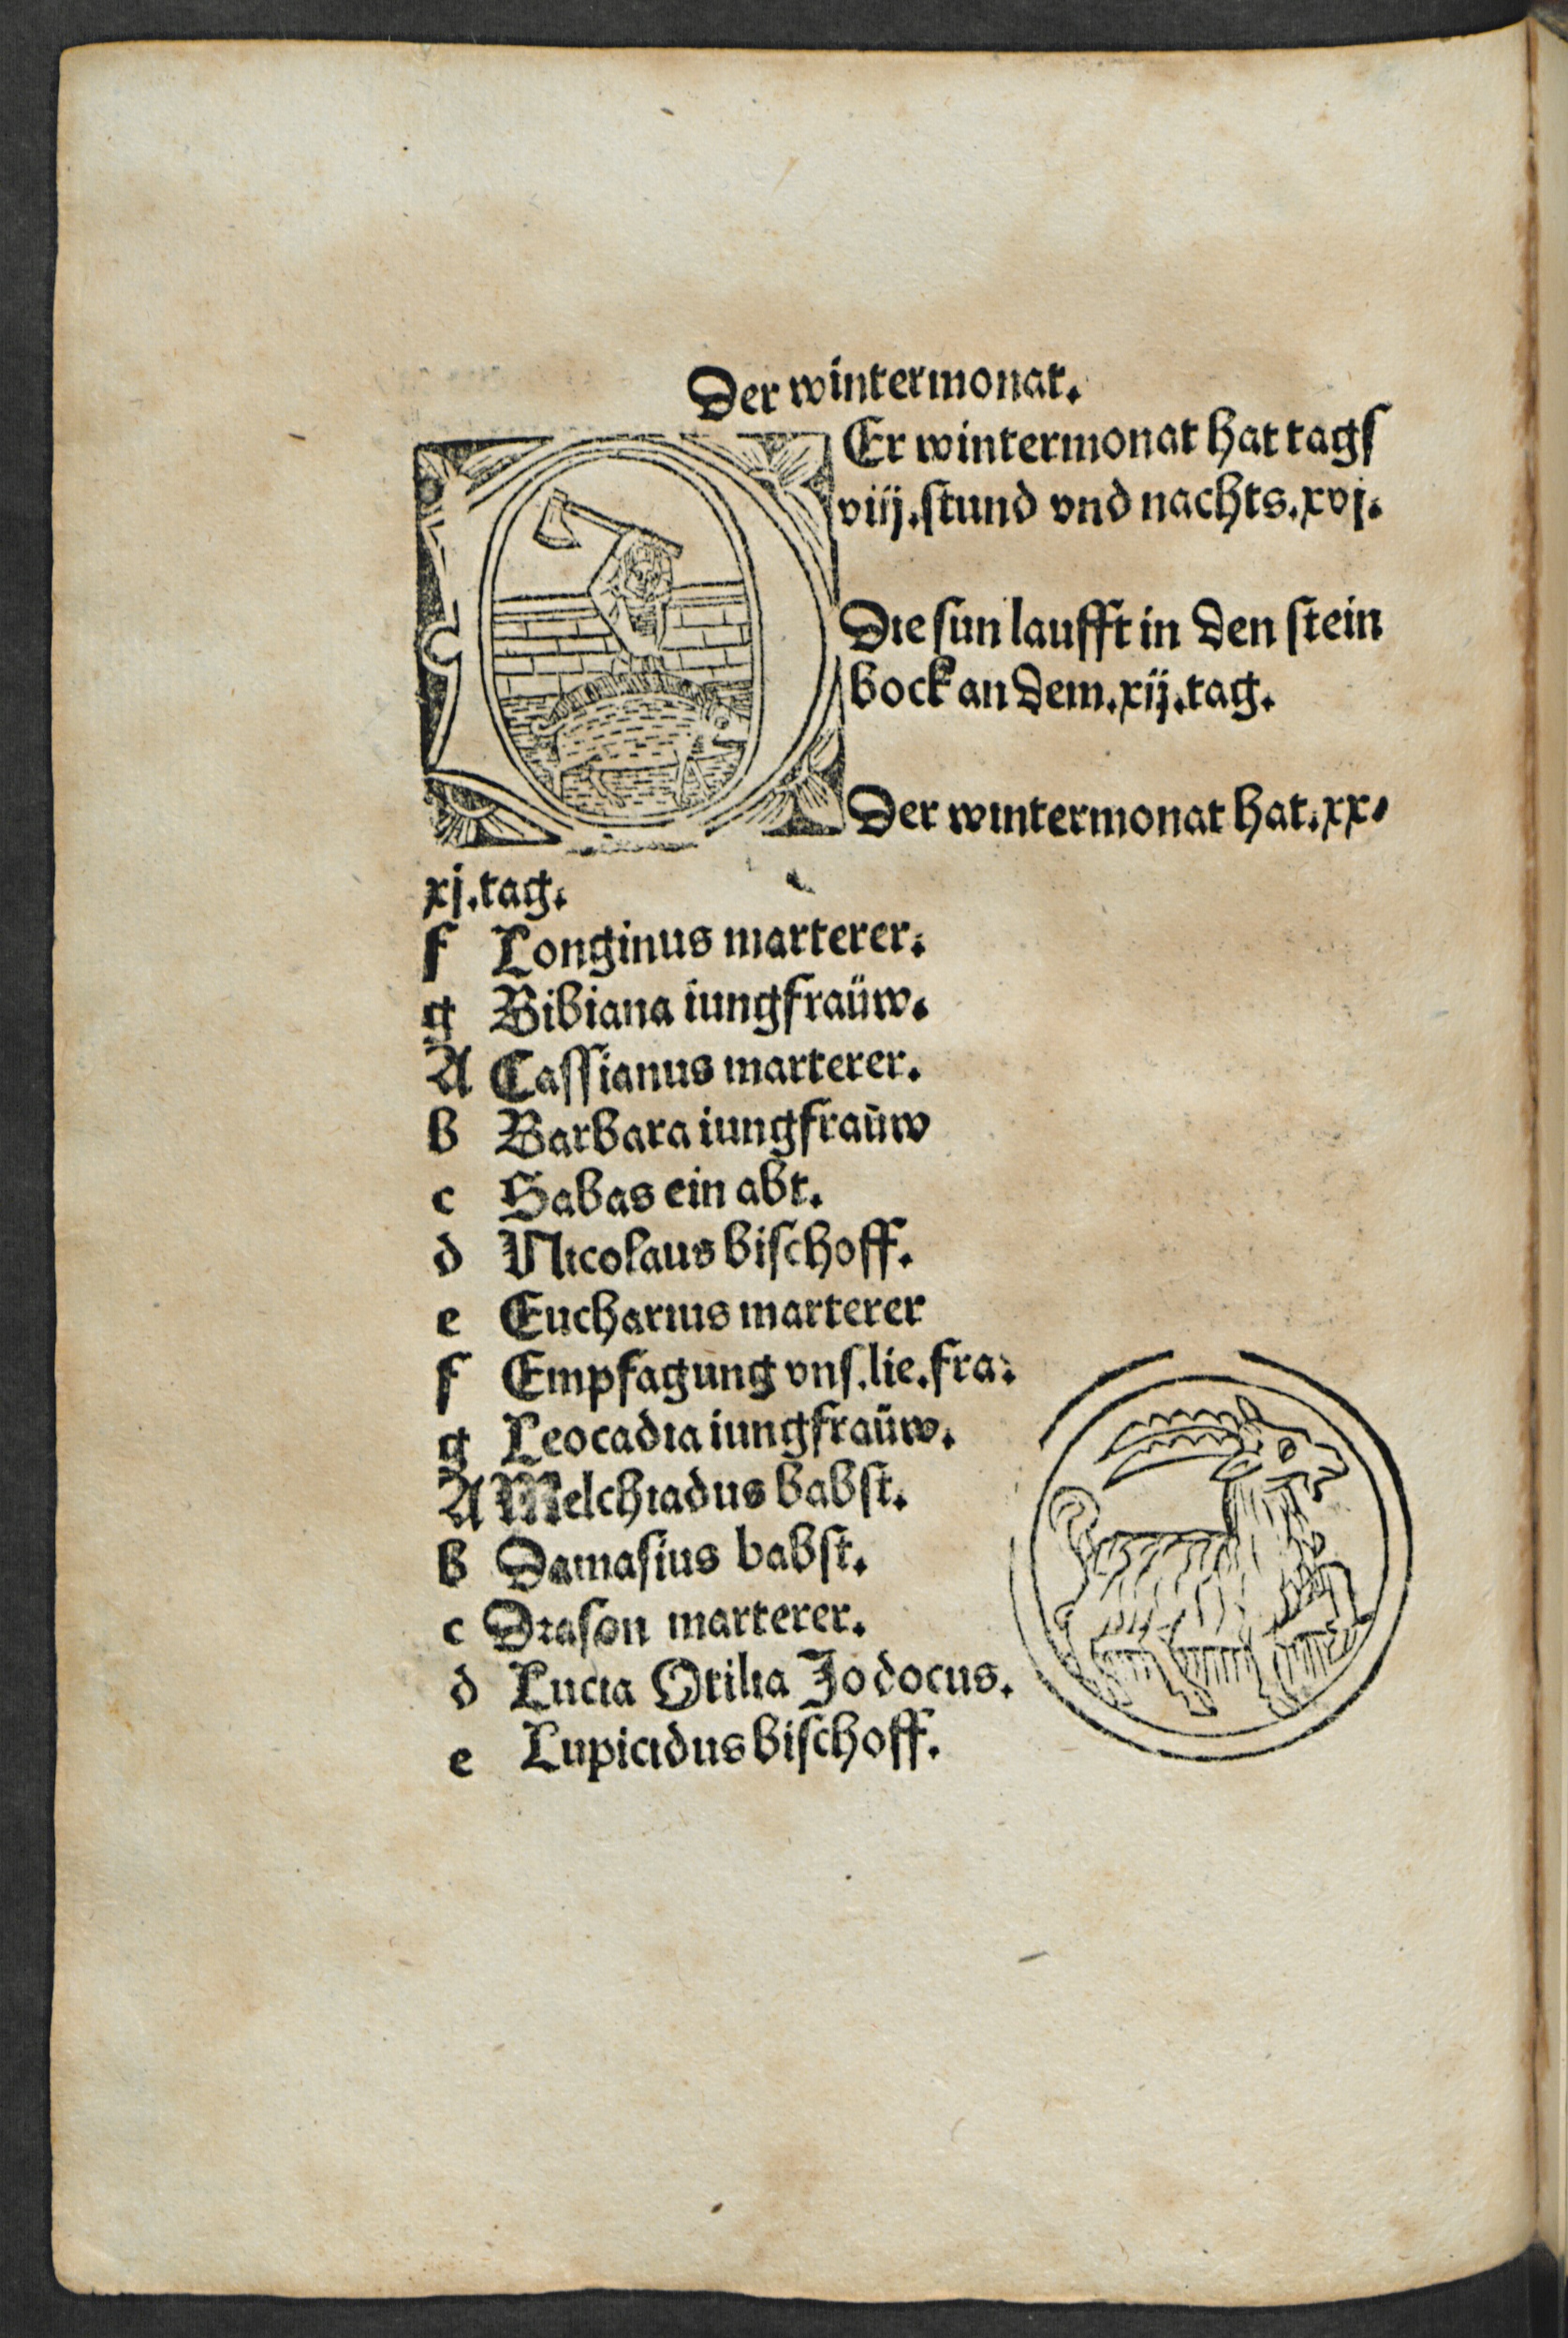 Der wintermonat.
DEr wintermonat hat tagſ
viij.ſtund vnd nachts.xvj.
Die ſun laufft in den ſtein
bock an dem.xij.tag.
Der wintermonat hat.xx⸗
xj.tag.
f Longinus marterer.
g Bibiana iungfraüw.
A Caſſianus marterer.
b Barbara iungfraüw
c Sabas ein abt.
d Nicolaus biſchoff.
e Eucharius marterer
f Empfagung vnſ.lie.fra.
g Leocadia iungfraüw.
A Melchiadus babſt.
b Damaſius babſt.
c Draſon marterer.
d Lucia Otilia Jodocus.
e Lupicidus biſchoff.